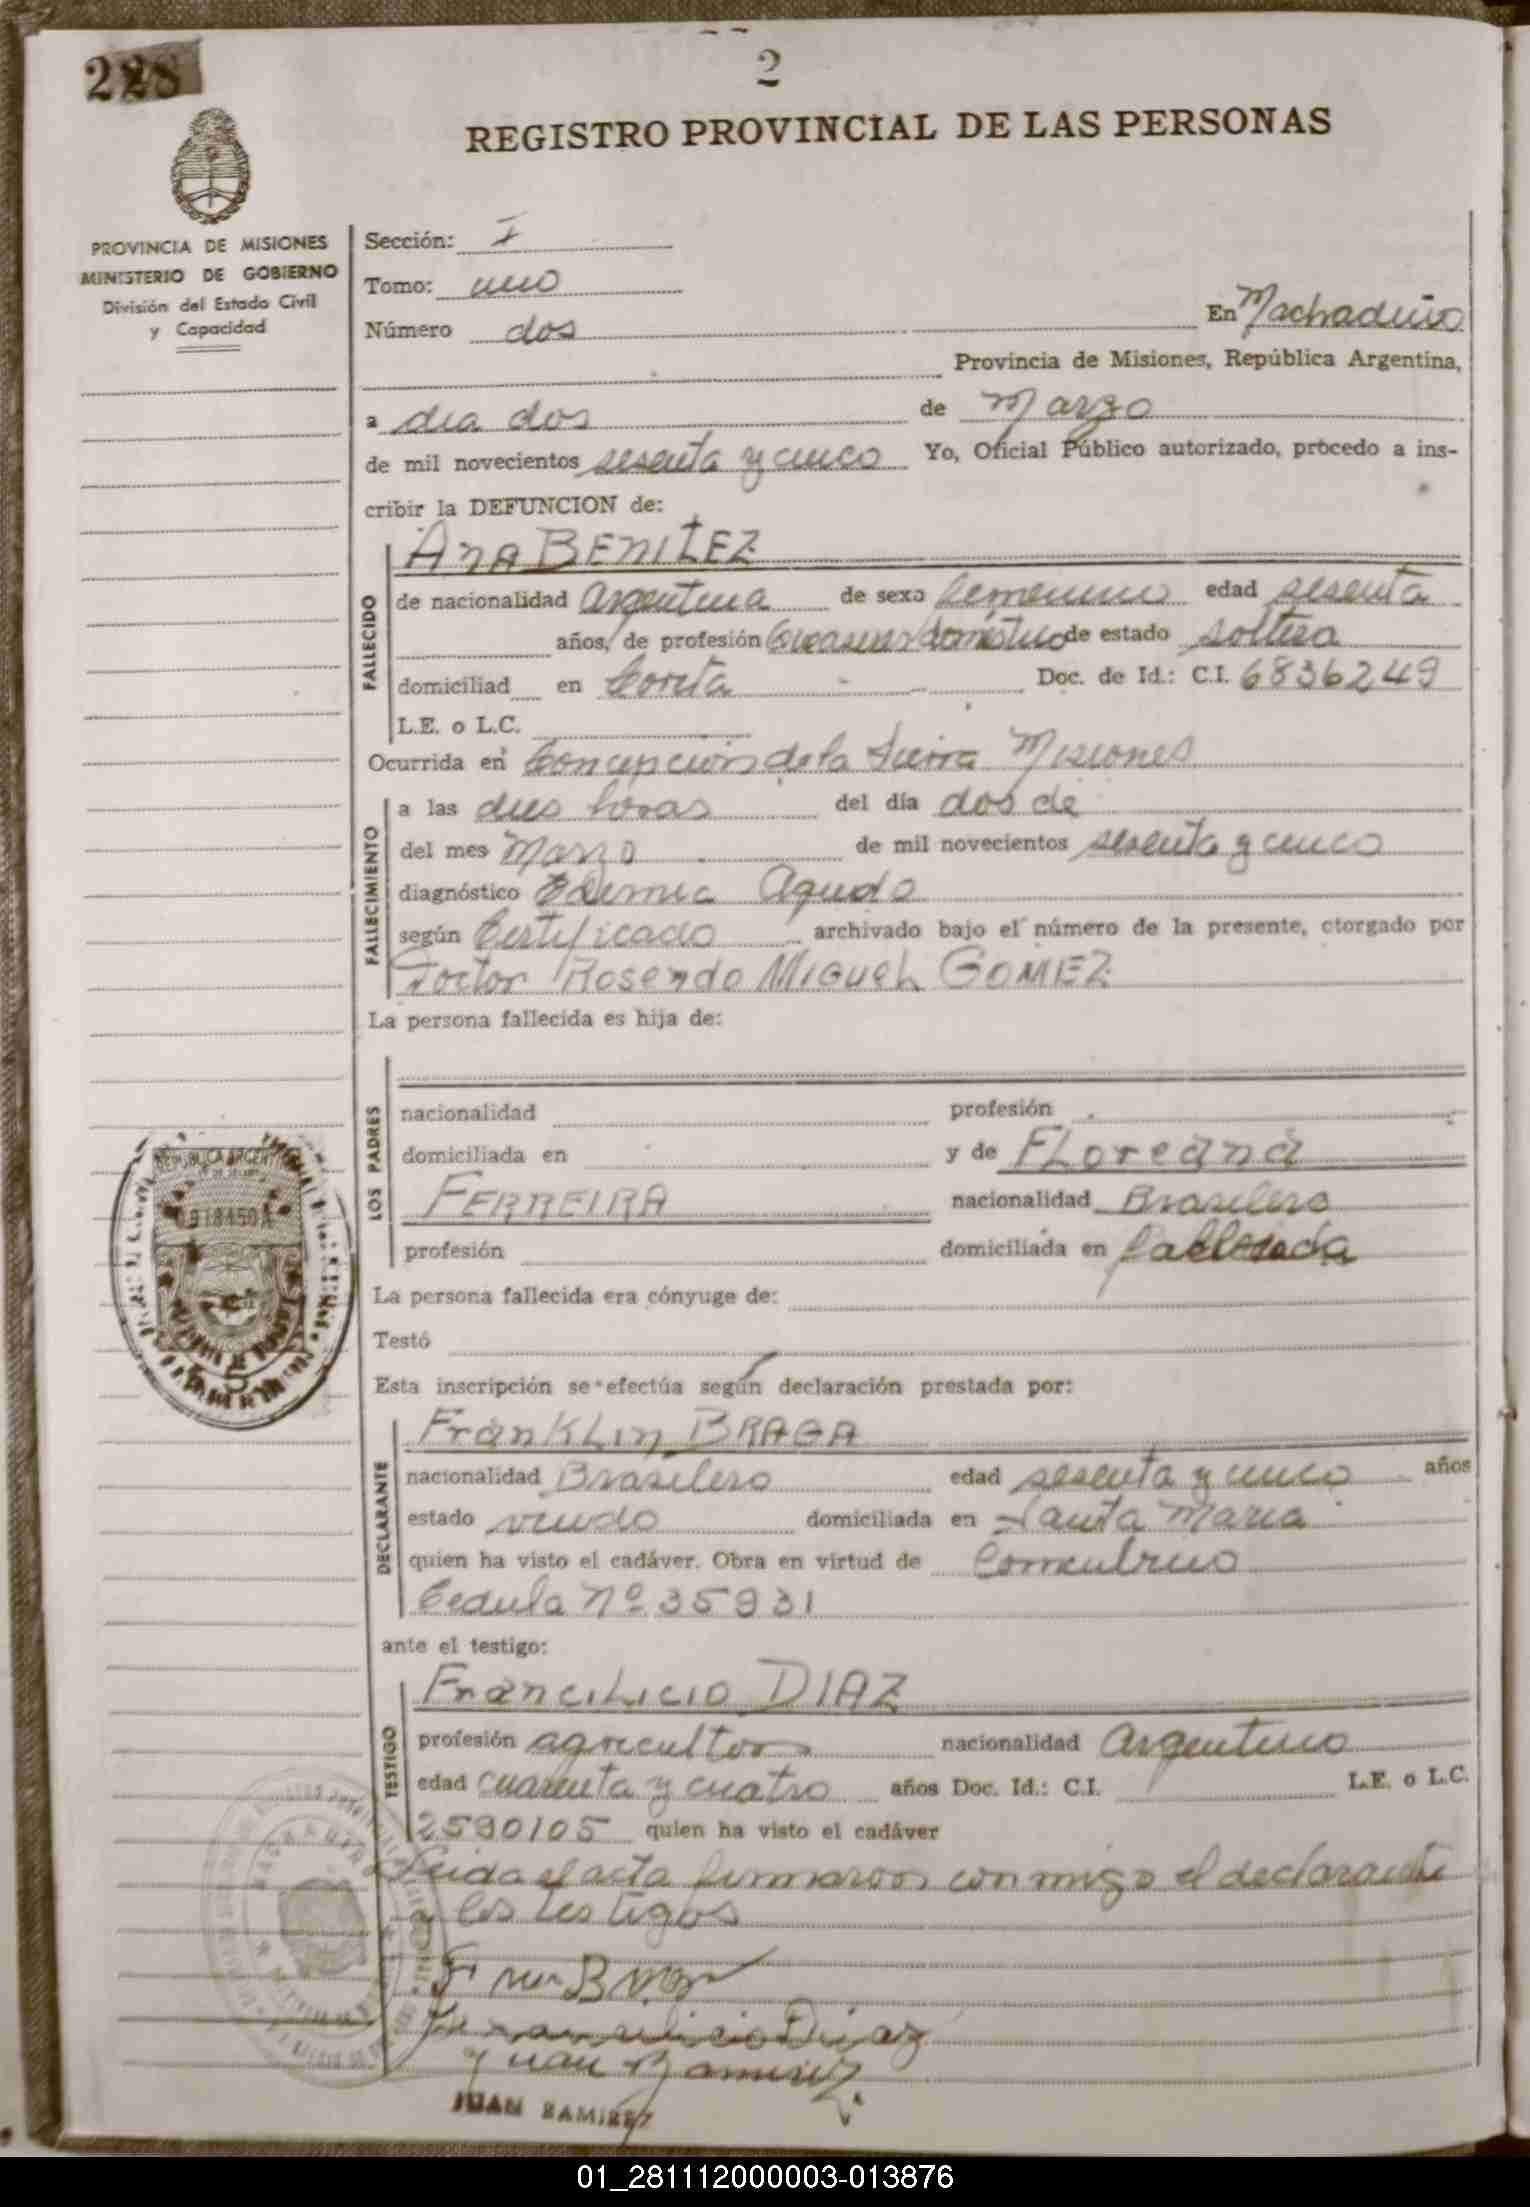 228
2
REGISTRO PROVINCIAL DE LAS PERSONAS
PROVINCIA DE MISIONES
MINISTERIO DE GOBIERNO
División del Estado Civil
y Capacidad
Sección: I
Tomo: uno
Número dos En Machadiño
Provincia de Misiones, República Argentina,
a dia dos de Marzo
de mil novecientos sesenta y cinco Yo, Oficial Público autorizado, procedo a ins-
cribir la DEFUNCION de:
FALLECIDO
Ana BENITEZ
de nacionalidad Argentina de sexo femenino edad sesenta
años, de profesión doméstico de estado soltera
domiciliad en Corita Doc. de Id.: C.I. 6836249
L.E. o L.C.
Ocurrida en Concepción de la Sierra Misiones
FALLECIMIENTO
a las dies horas del día dos de
del mes Marzo de mil novecientos sesenta y cinco
diagnóstico Agudo
según Certificado archivado bajo el número de la presente, otorgado por
Doctor Rosendo Miguel GOMEZ
La persona fallecida es hija de:
LOS PADRES
nacionalidad profesión
domiciliada en y de Floreana
FERREIRA nacionalidad Brasilero
profesión domiciliada en
La persona fallecida era cónyuge de:
Testó
Esta inscripción se efectúa según declaración prestada por:
DECLARANTE
Franklin BRAGA
nacionalidad Brasilero edad sesenta y cinco años
estado viudo domiciliada en Santa Maria
quien ha visto el cadáver. Obra en virtud de
Cedula Nº 35931
ante el testigo:
TESTIGO
Francilicio DIAZ
profesión agricultor nacionalidad Argentino
edad cuarenta y cuatro años Doc. Id.: C.I. L.E. o L.C.
2590105 quien ha visto el cadáver
Leida el acta firmaron conmigo el declarante
y los testigos
Francilicio Diaz
Juan Ramirez
JUAN RAMIREZ
REPUBLICA ARGENTINA
01_281112000003-013876